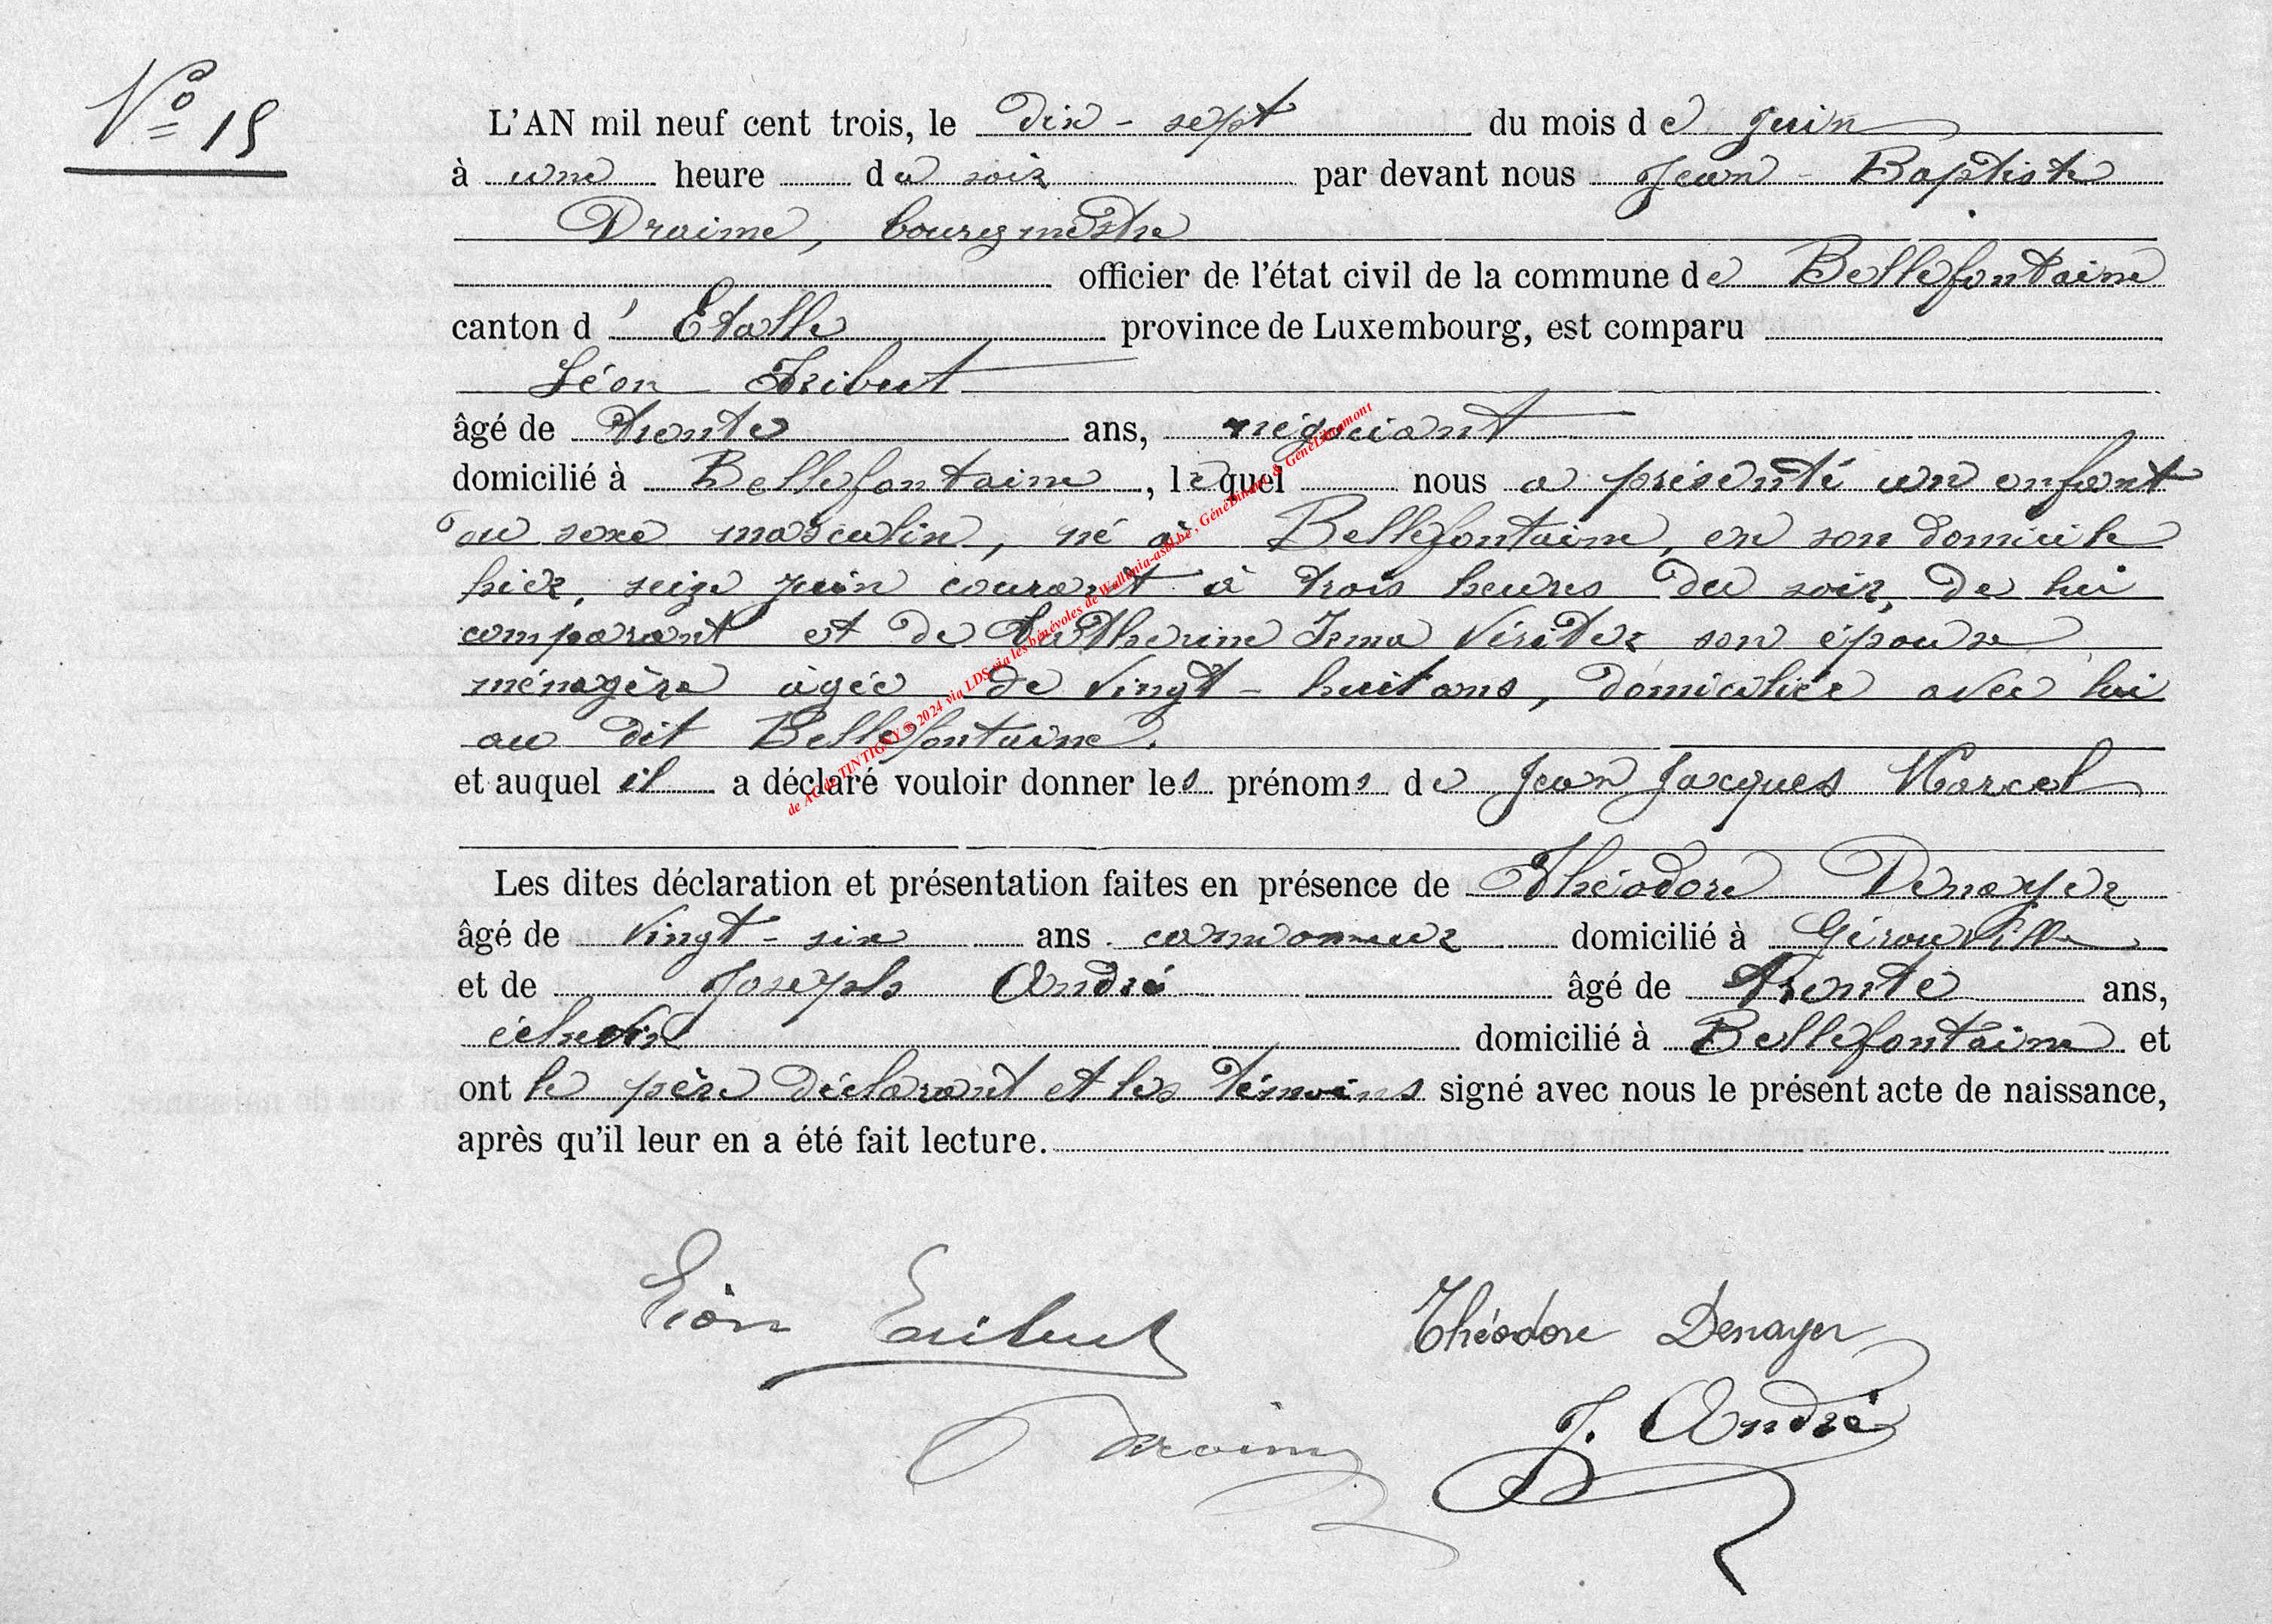 N° 15
L'AN mil neuf cent trois, le dix-sept du mois de juin
à une heure du soir par devant nous Jean-Baptiste
Draime, bourgmestre
officier de l'état civil de la commune de Bellefontaine
canton d'Etalle province de Luxembourg, est comparu
Léon Tribut
âgé de trente ans, négociant
domicilié à Bellefontaine, lequel nous a présenté un enfant
du sexe masculin, né à Bellefontaine, en son domicile
hier, seize juin courant à trois heures du soir, de lui
comparant et de Catherine Irma Vériter son épouse
ménagère âgée de vingt-huit ans, domiciliée avec lui
au dit Bellefontaine.
et auquel il a déclaré vouloir donner les prénoms de Jean Jacques Marcel
Les dites déclaration et présentation faites en présence de Théodore Denayer
âgé de vingt-six ans domicilié à Gérouville
et de Joseph André âgé de trente ans,
échevin domicilié à Bellefontaine et
ont le père déclarant et les témoins signé avec nous le présent acte de naissance,
après qu'il leur en a été fait lecture.
Léon Tribut
Théodore Denayer
Draime
J. André
de AC de TINTIGNY © 2024 via LDS via les bénévoles de Wallonia-asbl.be, GénéDinant & GénéLibramont